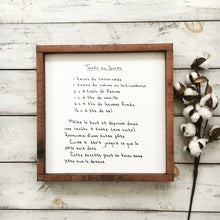 Tarte au Sucre
1 tasse de cassonade
1 tasse de crème
2 c. à table de farine
1 c. à thé de vanille
1 c. à thé de beurre fondu
½ c. à thé de sel
Mélanger le tout et déposer dans
une croûte à tarte (non cuite)
d'une autre pâte.
Cuire à 350° jusqu'à ce que la
pâte soit
Cette recette peut se faire sans
pâte sur le dessus